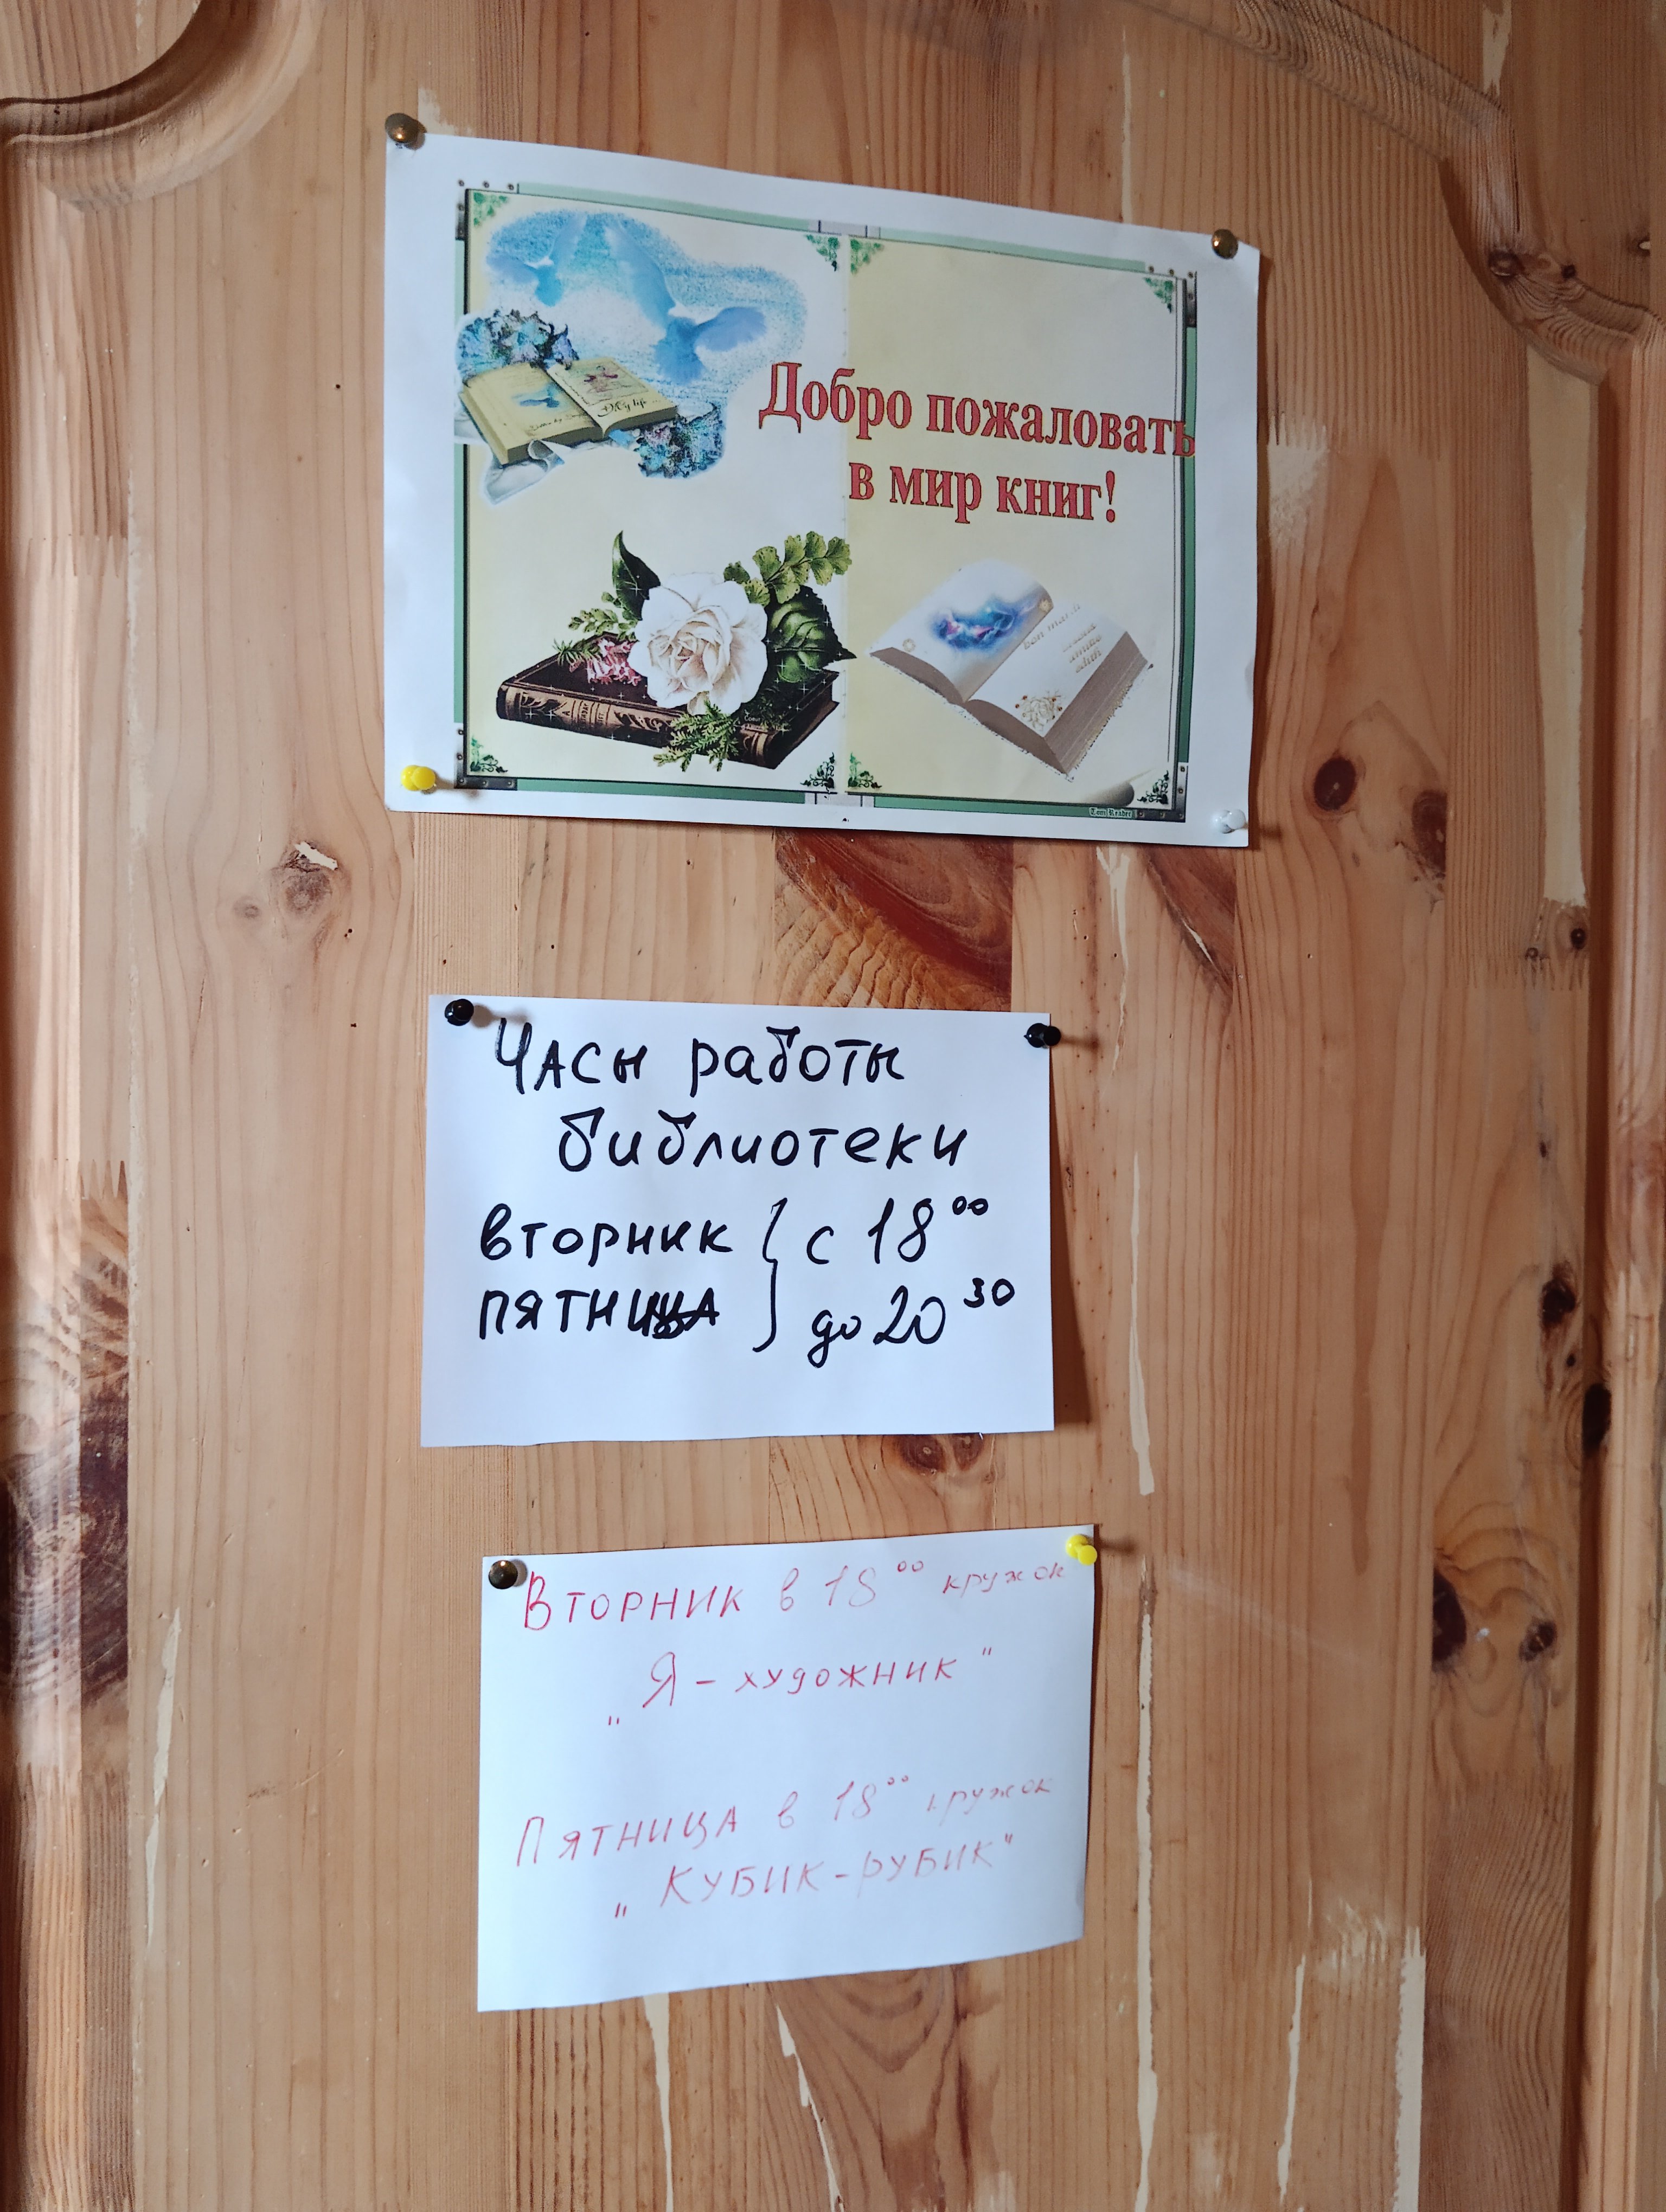 Добро пожаловать
в мир книг!
My life
Часы работы
библиотеки
вторник } с 18⁰⁰
пятница } до 20³⁰
Вторник в 18⁰⁰ кружок
„Я - художник"
Пятница в 18⁰⁰ кружок
„Кубик-рубик"